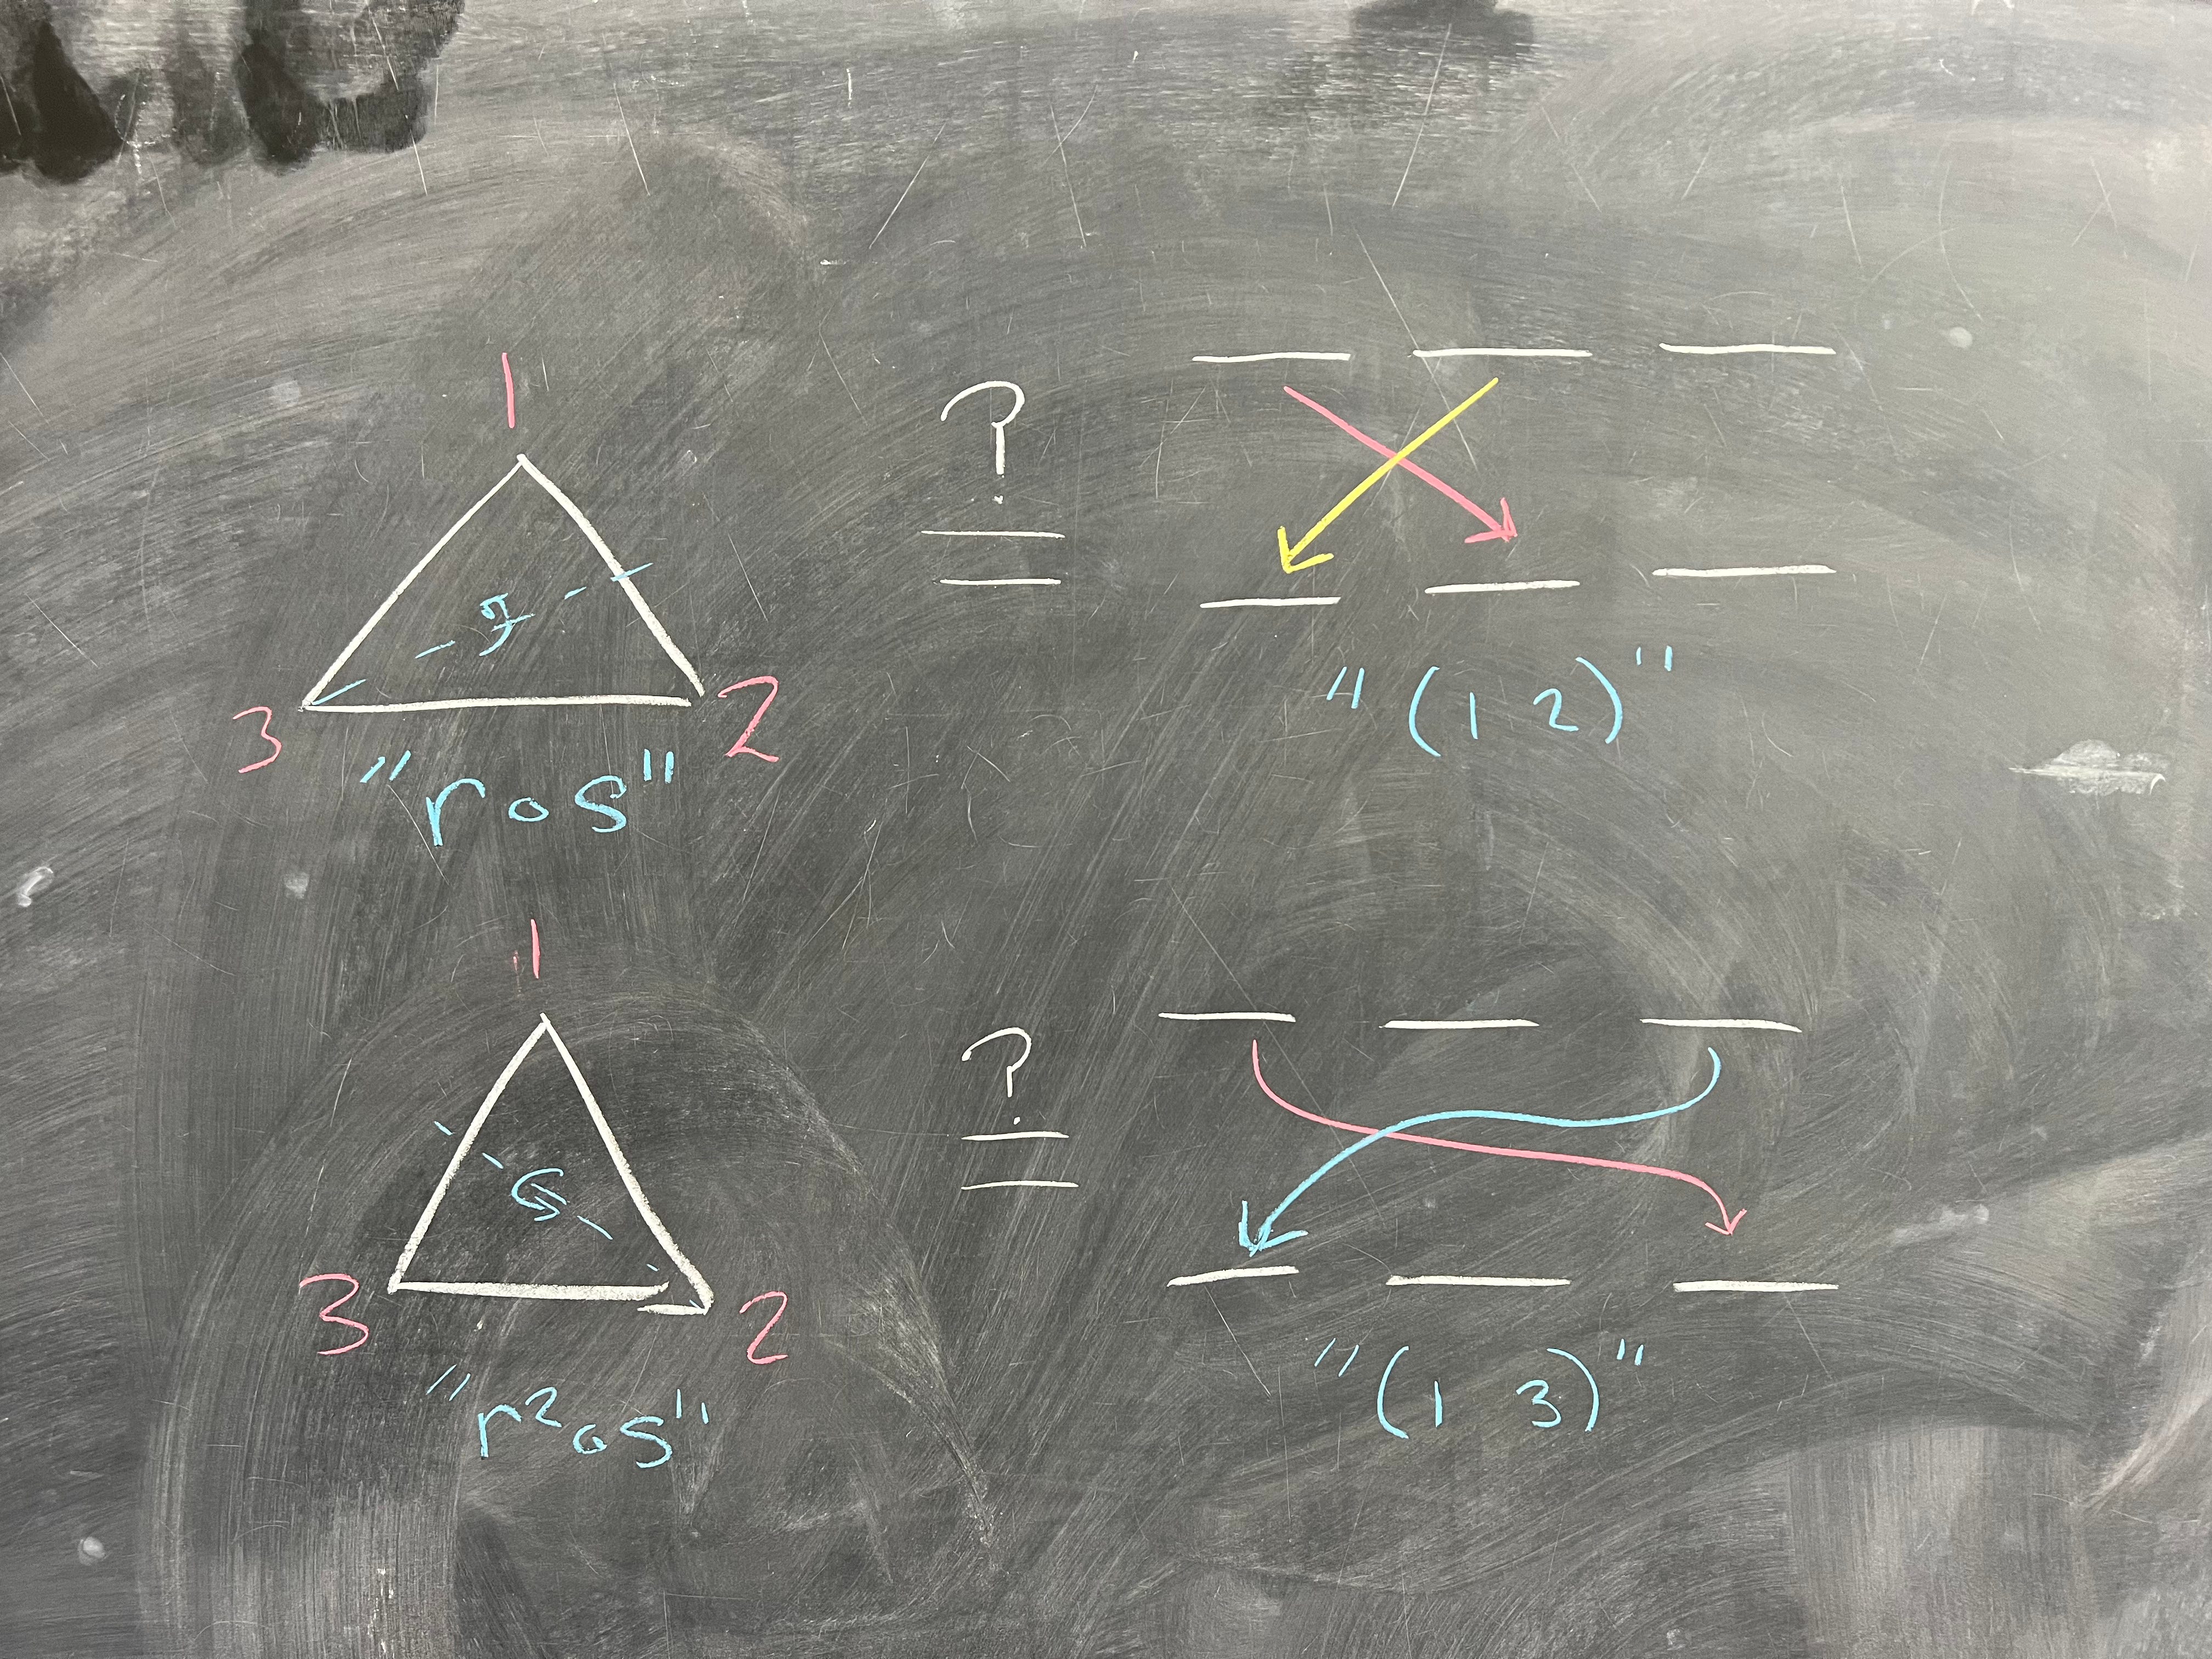 1
?
=
3 2
"r∘s"
"(1 2)"
1
?
=
3 2
"r²∘s"
"(1 3)"